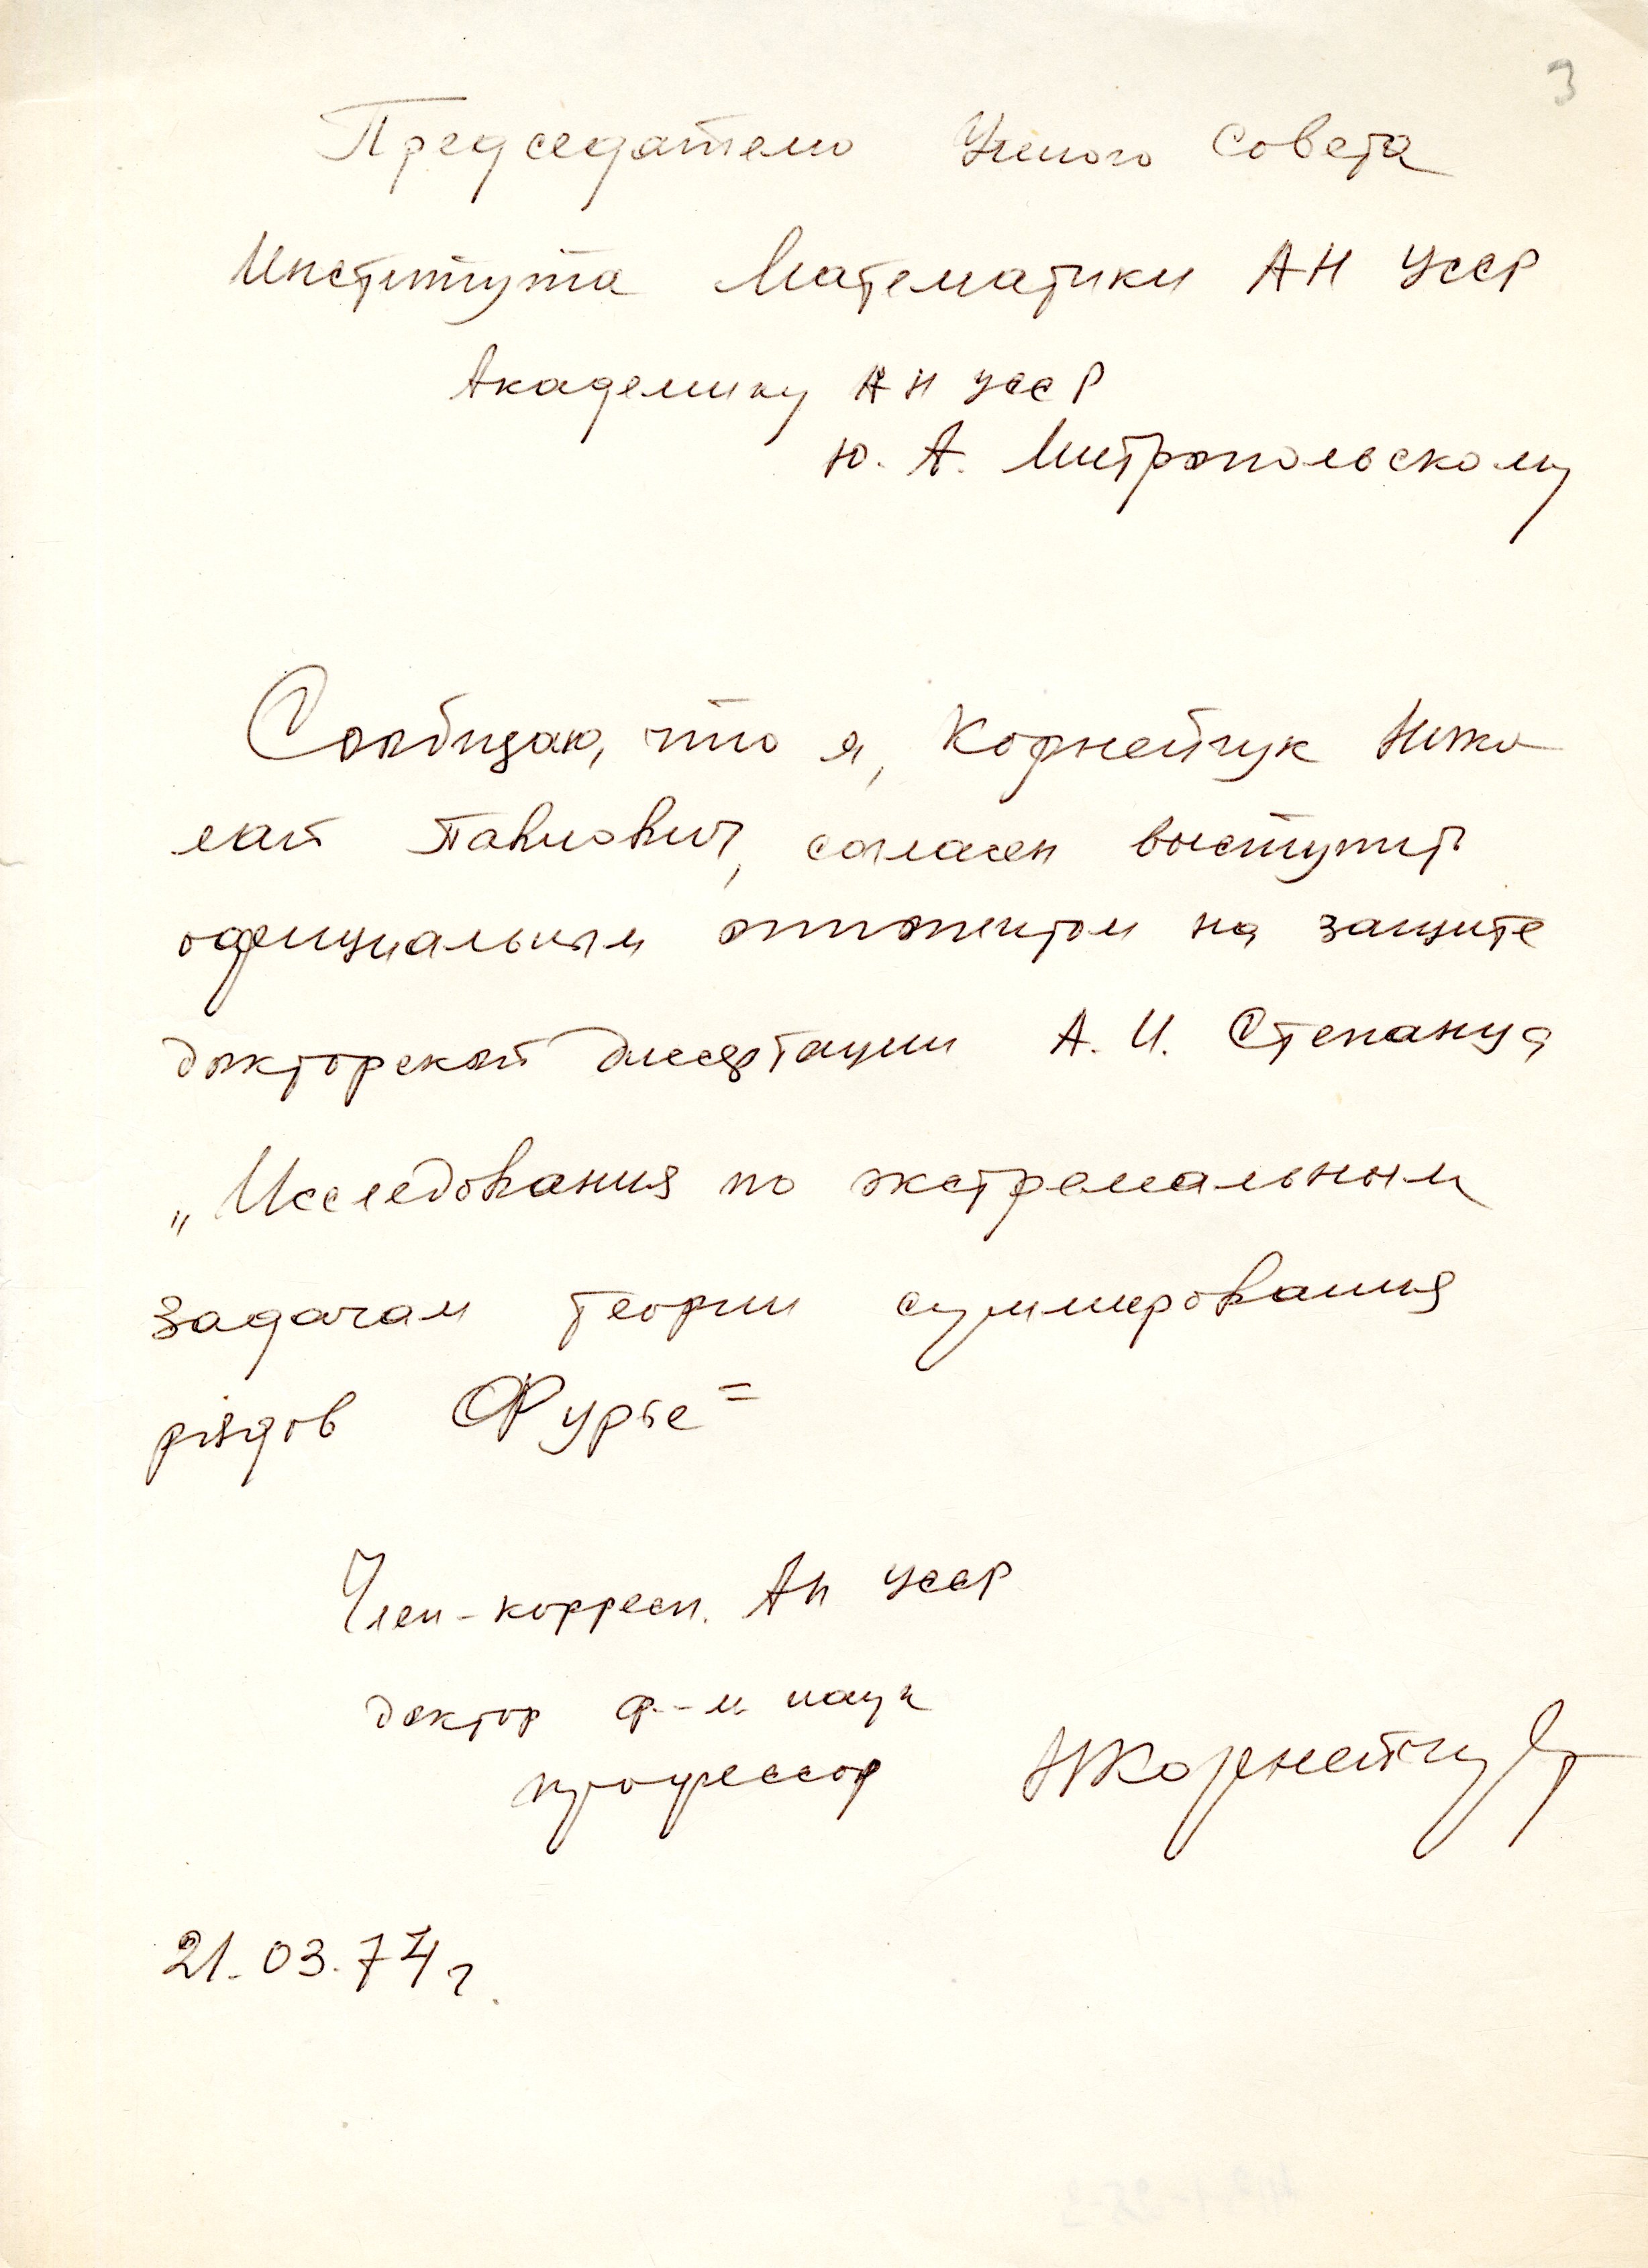 3
Председателю Ученого Совета
Института Математики АН УССР
Академику АН УССР
Ю. А. Митропольскому
Сообщаю, что я, Корнейчук Нико
лай Павлович, согласен выступить
официальным оппонентом на защите
докторской диссертации А. И. Степанца
„Исследования по экстремальным
задачам теории суммирования
рядов Фурье"
Член-корресп. АН УССР
доктор ф.-м. наук
профессор НКорнейчук
21.03.74 г.